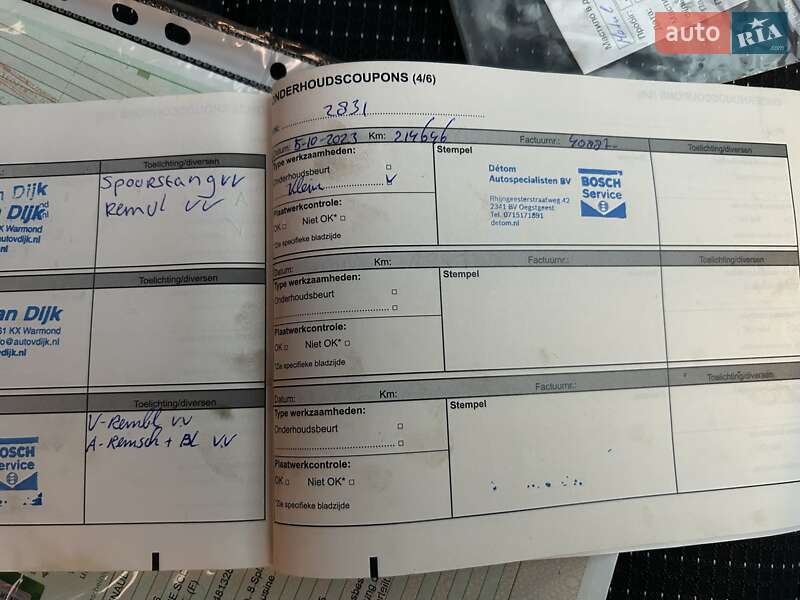 auto RIA .com
Toelichting/diversen
n Dijk
Dijk
KX Warmond
autovdijk.nl
Spoorstang vv
Remvl vv
Toelichting/diversen
an Dijk
61 KX Warmond
fo@autovdijk.nl
dijk.nl
Toelichting/diversen
BOSCH
Service
V-Rembl vv
A-Remsch + BL v.v
ONDERHOUDSCOUPONS (4/6)
2831
Datum: 5-10-2023 Km: 214646 Factuurnr.:
Toelichting/diversen
Type werkzaamheden:
Onderhoudsbeurt
Klein
Plaatwerkcontrole:
OK Niet OK*
*Zie specifieke bladzijde
Stempel
Détom
Autospecialisten BV
Rhijngeesterstraatweg 42
2341 BV Oegstgeest
Tel. 0715171891
detom.nl
BOSCH
Service
Datum: Km: Factuurnr.:
Toelichting/diversen
Type werkzaamheden:
Onderhoudsbeurt
Plaatwerkcontrole:
OK Niet OK*
*Zie specifieke bladzijde
Stempel
Datum: Km: Factuurnr.:
Toelichting/diversen
Type werkzaamheden:
Onderhoudsbeurt
Plaatwerkcontrole:
OK Niet OK*
*Zie specifieke bladzijde
Stempel